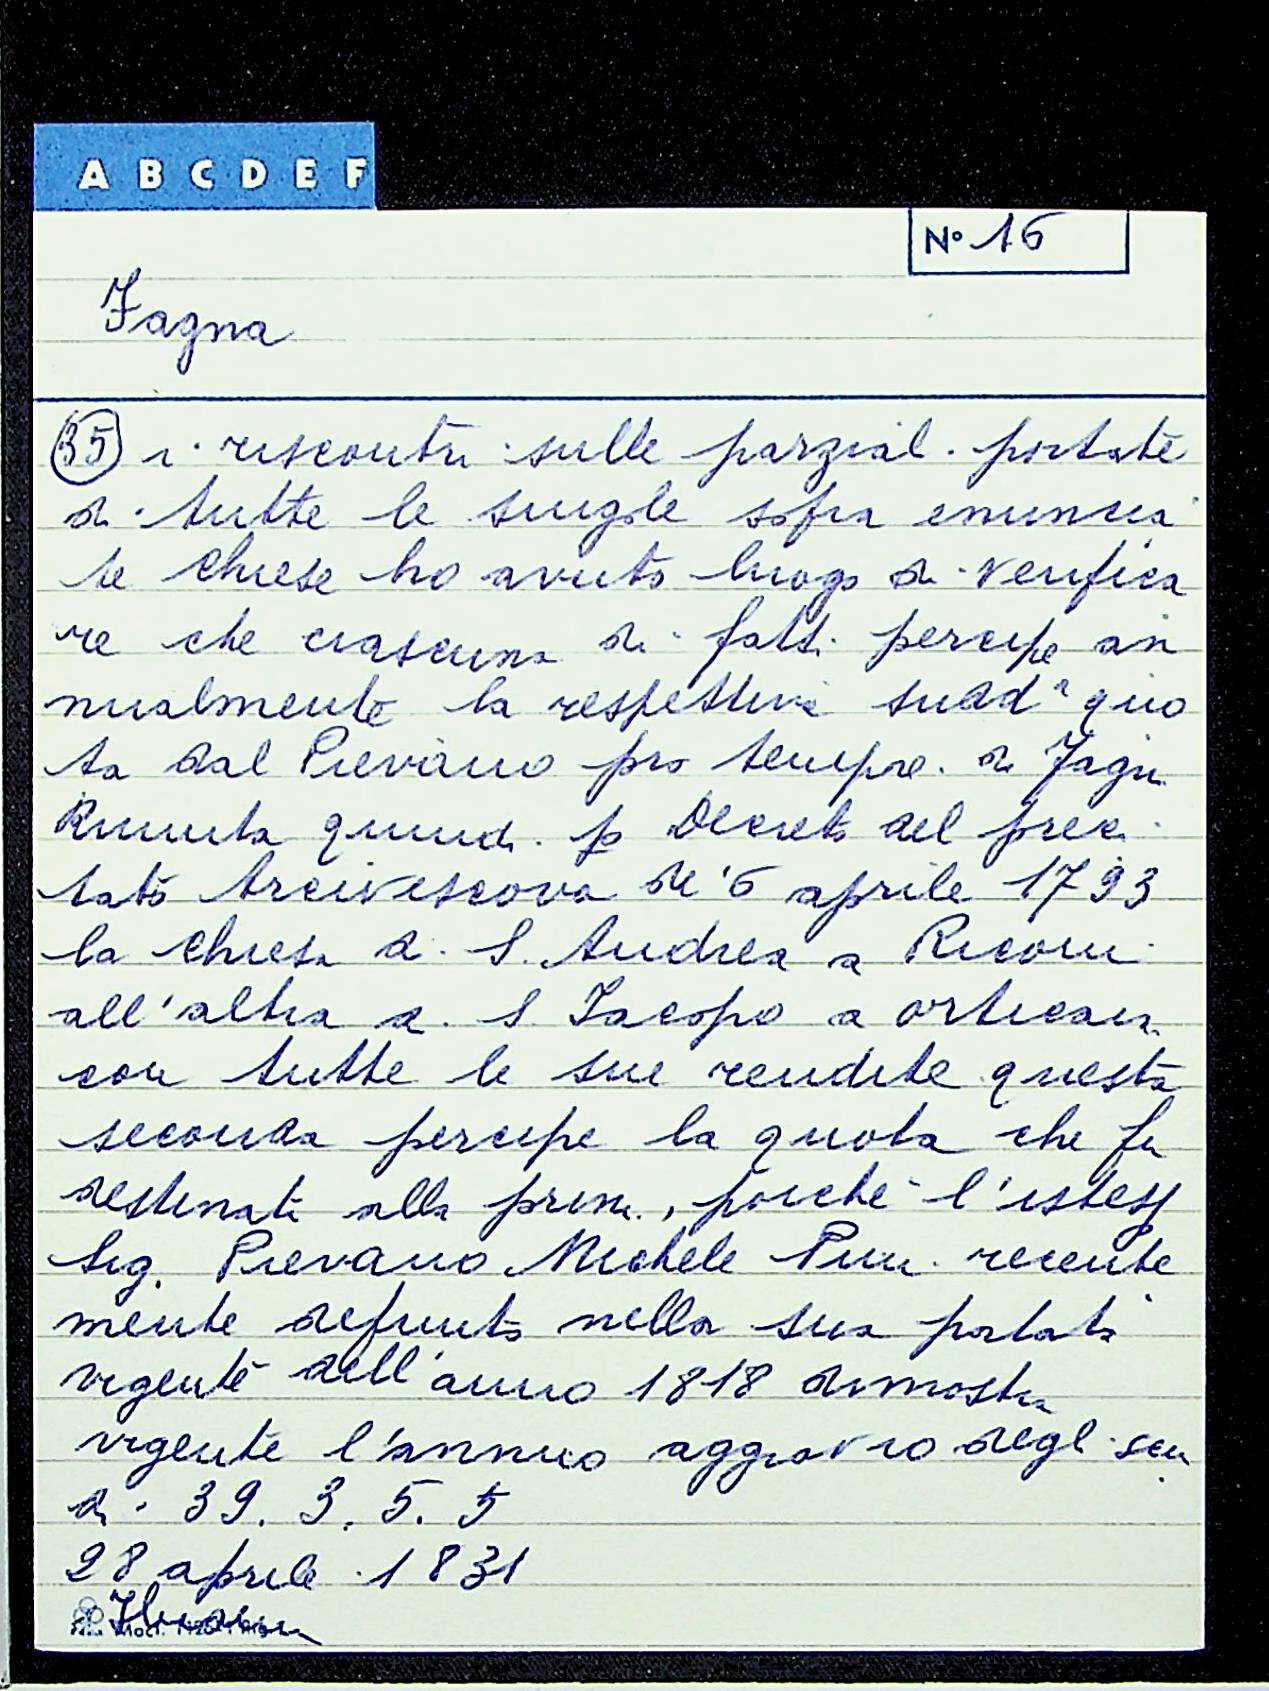 A B C D E F
N° 16
Fagna
35 i riscontri sulle parziali portate
di tutte le singole sopra enuncia
te Chiese ho avuto luogo di verifica
re che ciascuna di fatti percipe an
nualmente la respettiva sudda quo
ta dal Pievano pro tempore di Fagna
Riunita quindi p Decreto del preci
tato Arcivescovo de' 6 aprile 1793
la Chiesa di S. Andrea a Riconi
all'altra di S. Jacopo a Orticaia
con tutte le sue rendite questa
seconda percipe la quota che fu
destinata alla prima, poiché l'istess
Sig. Pievano Michele Pini recente
mente defunto nella sua portata
vigente dell'anno 1818 dimostra
vigente l'annuo aggravio degli scu
di 39. 3. 5. 5
28 aprile 1831